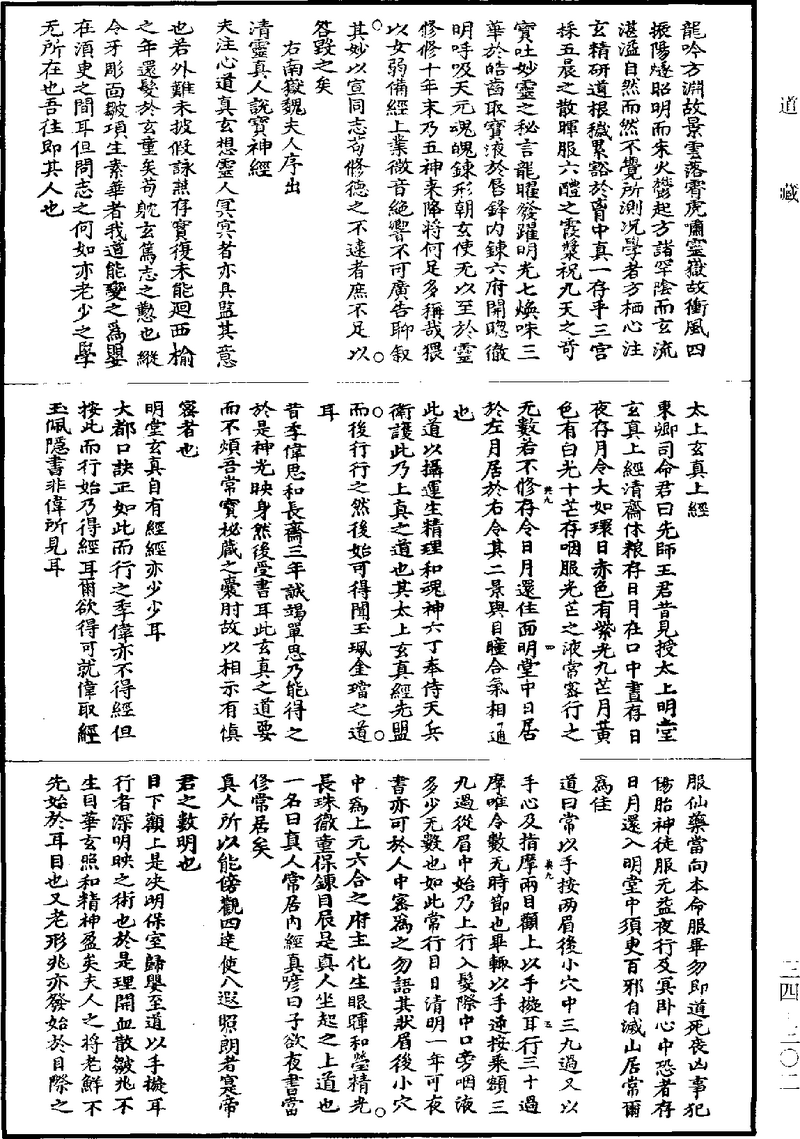 道藏
三四—三〇二
龍吟方淵故景雲落霄虎嘯靈嶽故衝風四
振陽燧昭明而朱火鬱起方諸罕陰而玄流
湛溢自然而然不覺所測況學者方栖心注
玄精研道根穢累豁於胷中真一存乎三宮
採五晨之散暉服六醴之霞漿祝九天之奇
寶吐妙靈之秘言龍曜發躍明光七煥咮三
華於皓齒取寶液於脣鋒內鍊六府開聰徹
明呼吸天元魂魄鍊形朝玄使无以至於靈
修修十年末乃五神来降將何足多稱哉猥
以女弱備經上業微音絕響不可廣告聊叙
其妙以宣同志苟修德之不逮者庶不足以
答毀之矣
右南嶽魏夫人序出
清靈真人說寶神經
夫注心道真玄想靈人冥冥者亦具監其意
也若外難未披假詠兼存實復未能迴西榆
之年還髮於玄童矣苟躭玄篤志之懃也縱
令牙彫面皺項生素華者我道能變之為嬰
在須更之間耳但問志之何如亦老少之學
无所在也吾往即其人也
太上玄真上經
東卿司命君曰先師王君昔見授太上明堂
玄真上經清齋休粮存日月在口中晝存日
夜存月令大如環日赤色有紫光九芒月黃
色有白光十芒存咽服光芒之液常密行之
无數若不修存令日月還住面明堂中日居
於左月居於右令其二景與目瞳合氣相通
也
此道以攝運生精理和魂神六丁奉侍天兵
衛護此乃上真之道也其太上玄真經先盟
而後行行之然後始可得聞玉珮金璫之道
耳
昔季偉思和長齋三年誠竭單思乃能得之
於是神光映身然後受書耳此玄真之道要
而不煩吾常寶秘藏之囊肘故以相示有慎
密者也
明堂玄真自有經經亦少少耳
大都口訣正如此而行之季偉亦不得經但
按此而行始乃得經耳爾欲得可就偉取經
玉佩隱書非偉所見耳
服仙藥當向本命服畢勿即道死喪凶事犯
傷胎神徒服无益夜行及冥卧心中恐者存
日月還入明堂中須更百邪自滅山居常爾
為佳
道曰常以手按兩眉後小穴中三九過又以
手心及指摩兩目顴上以手㨰耳行三十過
摩唯令數无時節也畢輙以手逆按乘額三
九過從眉中始乃上行入髮際中口旁咽液
多少无數也如此常行目日清明一年可夜
書亦可於人中密為之勿語其狀眉後小穴
中為上元六合之府主化生眼暉和瑩精光
長珠徹童保鍊目晨是真人坐起之上道也
一名曰真人常居內經真諺曰子欲夜書當
修常居矣
真人所以能傍觀四達使八遐照朗者寔常
君之數明也
目下顴上是決明保室歸嬰至道以手㨰耳
行者深明映之術也於是理開血散皺兆不
生目華玄照和精神盈矣夫人之將老鮮不
先始於耳目也又老形兆亦發始於目際之